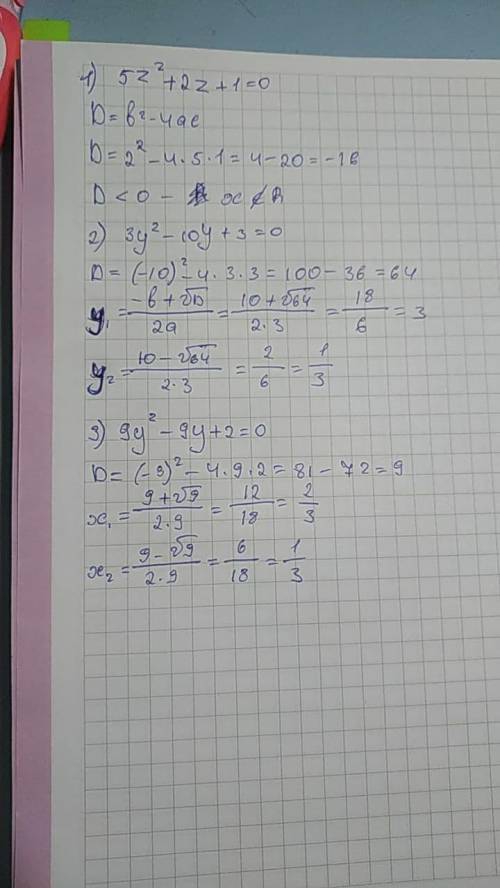 1) 5z² + 2z + 1 = 0
D = b² - 4ac
D = 2² - 4 · 5 · 1 = 4 - 20 = -16
D < 0 - x ∉ R
2) 3y² - 10y + 3 = 0
D = (-10)² - 4 · 3 · 3 = 100 - 36 = 64
y₁ = (-b + √D)/(2a) = (10 + √64)/(2 · 3) = 18/6 = 3
y₂ = (10 - √64)/(2 · 3) = 2/6 = 1/3
3) 9y² - 9y + 2 = 0
D = (-9)² - 4 · 9 · 2 = 81 - 72 = 9
x₁ = (9 + √9)/(2 · 9) = 12/18 = 2/3
x₂ = (9 - √9)/(2 · 9) = 6/18 = 1/3